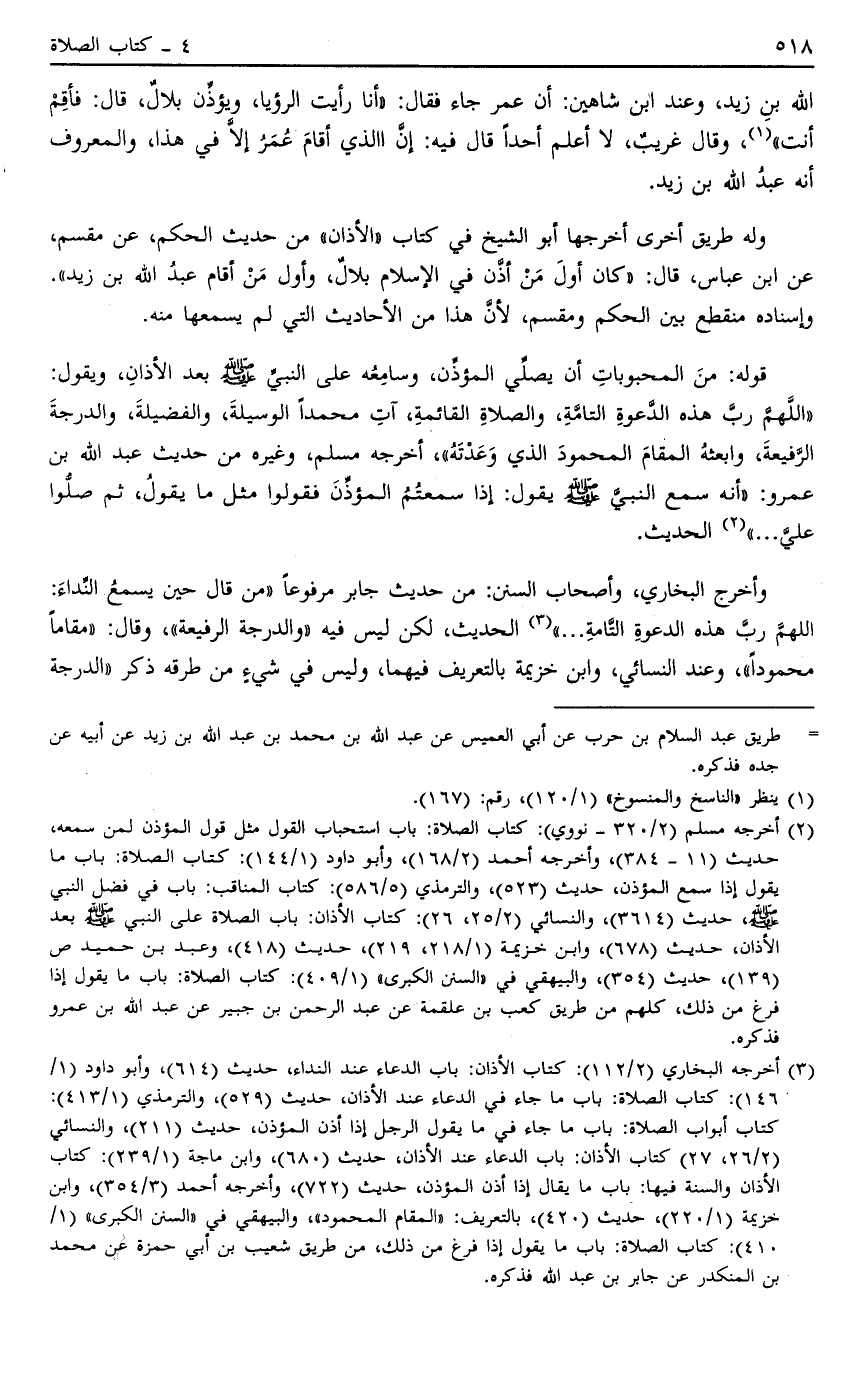 ٥١٨
٤ ـ كتاب الصلاة
الله بنِ زيد، وعند ابن شاهين: أن عمر جاء فقال: «أنا رأيت الرؤيا، ويؤذِّن بلالٌ، قال: فأقِمْ
أنت»(١)، وقال غريبٌ، لا أعلم أحداً قال فيه: إنَّ االذي أقامَ عُمَرُ إلاَّ في هذا، والمعروف
أنه عبدُ الله بن زيد.
وله طريق أخرى أخرجها أبو الشيخ في كتاب «الأذان» من حديث الحكم، عن مقسم،
عن ابن عباس، قال: «كان أولَ مَنْ أذَّن في الإسلام بلالٌ، وأول مَنْ أقام عبدُ الله بن زيد».
وإسناده منقطع بين الحكم ومقسم، لأنَّ هذا من الأحاديث التي لم يسمعها منه.
قوله: منَ المحبوباتِ أن يصلِّي المؤذِّن، وسامِعُه على النبيِّ ﷺ بعد الأذانِ، ويقول:
«اللَّهمَّ ربَّ هذه الدَّعوةِ التامَّةِ، والصلاةِ القائمةِ، آتِ محمداً الوسيلةَ، والفضيلةَ، والدرجةَ
الرَّفيعةَ، وابعثهُ المقامَ المحمودَ الذي وَعَدْتَهُ»، أخرجه مسلم، وغيره من حديث عبد الله بن
عمرو: «أنه سمع النبيَّ ﷺ يقول: إذا سمعتُمُ المؤذِّنَ فقولوا مثل ما يقولُ، ثم صلُّوا
عليَّ...»(٢) الحديث.
وأخرج البخاري، وأصحاب السنن: من حديث جابر مرفوعاً «من قال حين يسمعُ النِّداءَ:
اللهمَّ ربَّ هذه الدعوةِ التَّامةِ...»(٣) الحديث، لكن ليس فيه «والدرجة الرفيعة»، وقال: «مقاماً
محموداً»، وعند النسائي، وابن خزيمة بالتعريف فيهما، وليس في شيءٍ من طرقه ذكر «الدرجة
= طريق عبد السلام بن حرب عن أبي العميس عن عبد الله بن محمد بن عبد الله بن زيد عن أبيه عن
جده فذكره.
(١) ينظر «الناسخ والمنسوخ» (١/ ١٢٠)، رقم: (١٦٧).
(٢) أخرجه مسلم (٢/ ٣٢٠ ـ نووي): كتاب الصلاة: باب استحباب القول مثل قول المؤذن لمن سمعه،
حديث (١١ ـ ٣٨٤)، وأخرجه أحمد (٢/ ١٦٨)، وأبو داود (١/ ١٤٤): كتاب الصلاة: باب ما
يقول إذا سمع المؤذن، حديث (٥٢٣)، والترمذي (٥/ ٥٨٦): كتاب المناقب: باب في فضل النبي
ﷺ، حديث (٣٦١٤)، والنسائي (٢/ ٢٥، ٢٦): كتاب الأذان: باب الصلاة على النبي ﷺ بعد
الأذان، حديث (٦٧٨)، وابن خزيمة (١/ ٢١٨، ٢١٩)، حديث (٤١٨)، وعبد بن حميد ص
(١٣٩)، حديث (٣٥٤)، والبيهقي في «السنن الكبرى» (١/ ٤٠٩): كتاب الصلاة: باب ما يقول إذا
فرغ من ذلك، كلهم من طريق كعب بن علقمة عن عبد الرحمن بن جبير عن عبد الله بن عمرو
فذكره.
(٣) أخرجه البخاري (٢/ ١١٢): كتاب الأذان: باب الدعاء عند النداء، حديث (٦١٤)، وأبو داود (١/
١٤٦): كتاب الصلاة: باب ما جاء في الدعاء عند الأذان، حديث (٥٢٩)، والترمذي (١/ ٤١٣):
كتاب أبواب الصلاة: باب ما جاء في ما يقول الرجل إذا أذن المؤذن، حديث (٢١١)، والنسائي
(٢/ ٢٦، ٢٧) كتاب الأذان: باب الدعاء عند الأذان، حديث (٦٨٠)، وابن ماجة (١/ ٢٣٩): كتاب
الأذان والسنة فيها: باب ما يقال إذا أذن المؤذن، حديث (٧٢٢)، وأخرجه أحمد (٣/ ٣٥٤)، وابن
خزيمة (١/ ٢٢٠)، حديث (٤٢٠)، بالتعريف: «المقام المحمود»، والبيهقي في «السنن الكبرى» (١/
٤١٠): كتاب الصلاة: باب ما يقول إذا فرغ من ذلك، من طريق شعيب بن أبي حمزة عن محمد
بن المنكدر عن جابر بن عبد الله فذكره.